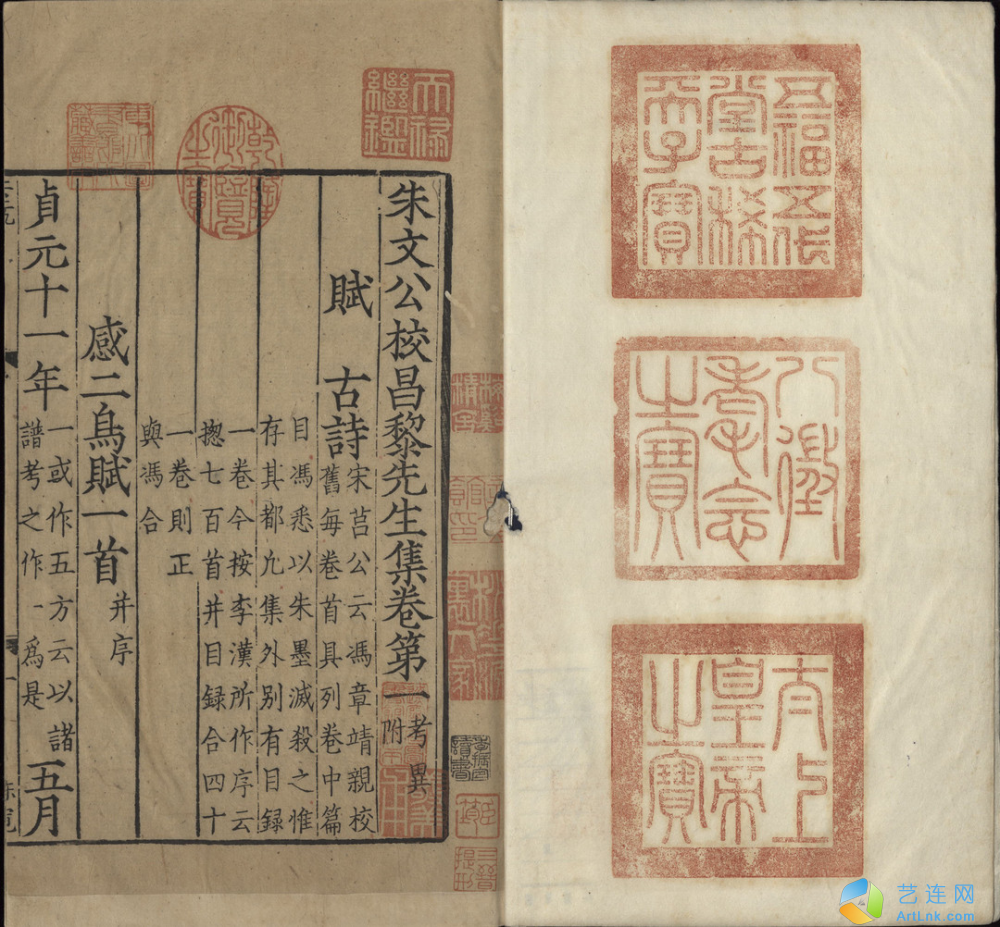 五福五代
堂古稀
天子寶
八徵
耄念
之寶
太上
皇帝
之寶
天祿
繼鑑
乾隆
御覽
之寶
朱文公校昌黎先生集卷第一
考異
附
賦 古詩
宋莒公云馮章靖親校
舊每卷首具列卷中篇
目馮悉以朱墨滅殺之惟
存其都凢集外别有目録
一卷今按李漢所作序云
揔七百首并目録合四十
一卷則正
與馮合
感二鳥賦一首 并序
貞元十一年
一或作五方云以諸
譜考之作一爲是
五月
艺连网
ArtLnk.com